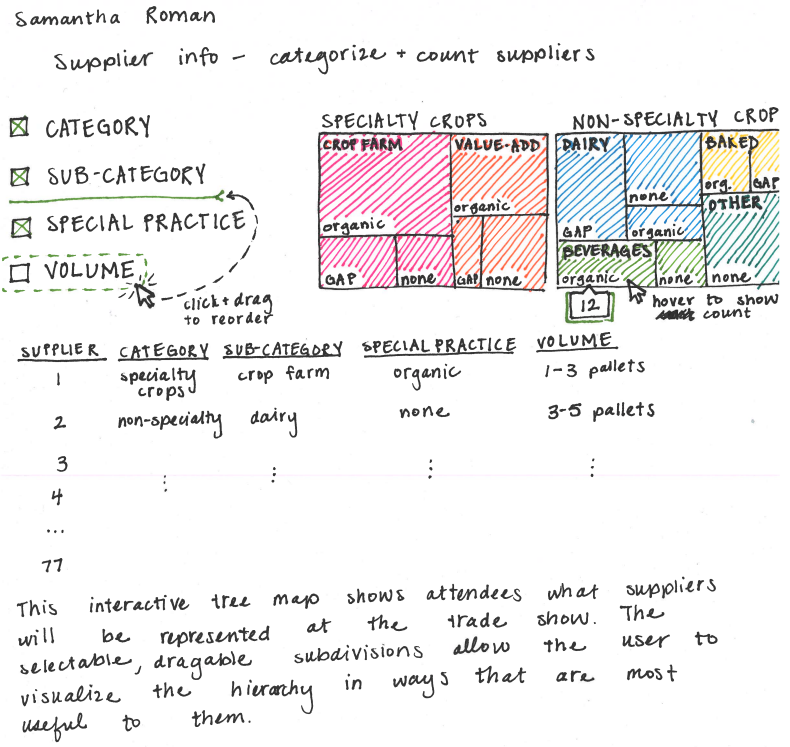 Samantha Roman
Supplier info - categorize + count suppliers
CATEGORY
SUB-CATEGORY
SPECIAL PRACTICE
VOLUME
click + drag
to reorder
SPECIALTY CROPS
CROP FARM
organic
GAP
none
VALUE-ADD
organic
GAP
none
NON-SPECIALTY CROP
DAIRY
GAP
none
organic
BAKED
org.
GAP
OTHER
none
BEVERAGES
organic
none
12
hover to show
count
SUPPLIER CATEGORY SUB-CATEGORY SPECIAL PRACTICE VOLUME
1 specialty crops crop farm organic 1-3 pallets
2 non-specialty dairy none 3-5 pallets
3
4
...
77
This interactive tree map shows attendees what suppliers
will be represented at the trade show. The
selectable, dragable subdivisions allow the user to
visualize the hierarchy in ways that are most
useful to them.